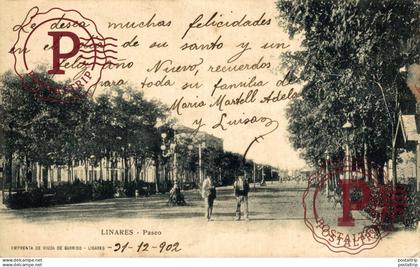 Le desea muchas felicidades
en el día de su santo y un
feliz año Nuevo, recuerdos
para toda su familia de
Maria Martell Adela
y Luisa
LINARES - Paseo
IMPRENTA DE VIUDA DE GARRIDO - LINARES
31-12-902